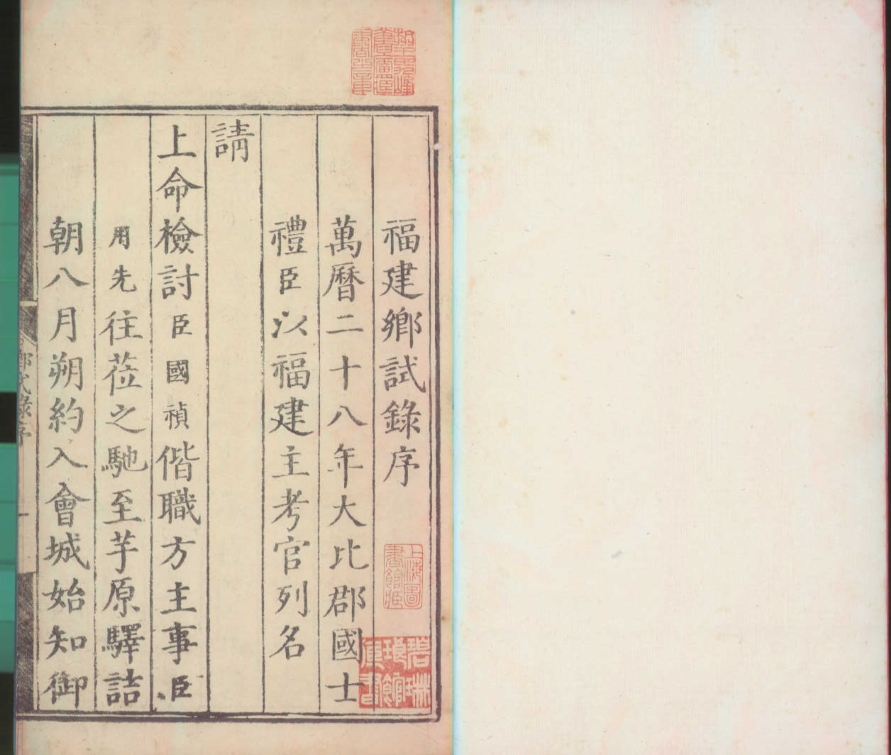 福建鄉試錄序
萬曆二十八年大比郡國士
禮臣以福建主考官列名
請
上命檢討臣國禎偕職方主事臣
用先往蒞之馳至芋原驛詰
朝八月朔約入會城始知御
上海圖書館藏